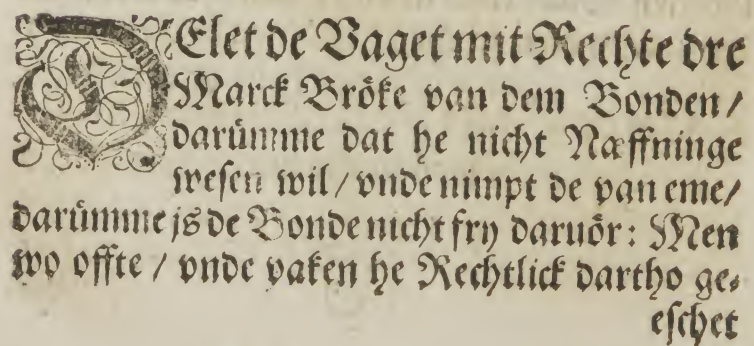 DElet de Vaget mit Rechte dre
Marck Bröke van dem Bonden /
darümme dat he nicht Næffninge
wesen wil / vnde nimpt de van eme /
darümme js de Bonde nicht fry daruör: Men
wo offte / vnde vaken he Rechtlick dartho ge⸗
eschet